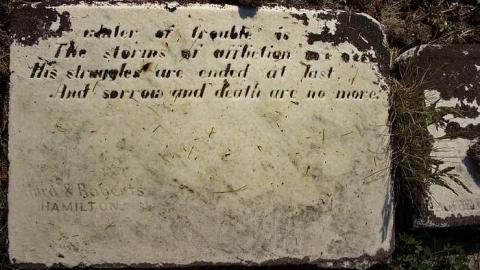 winter of trouble is
The storms of affliction are
His struggles are ended at last
And sorrow and death are no more.
& Roberts
HAMILTON